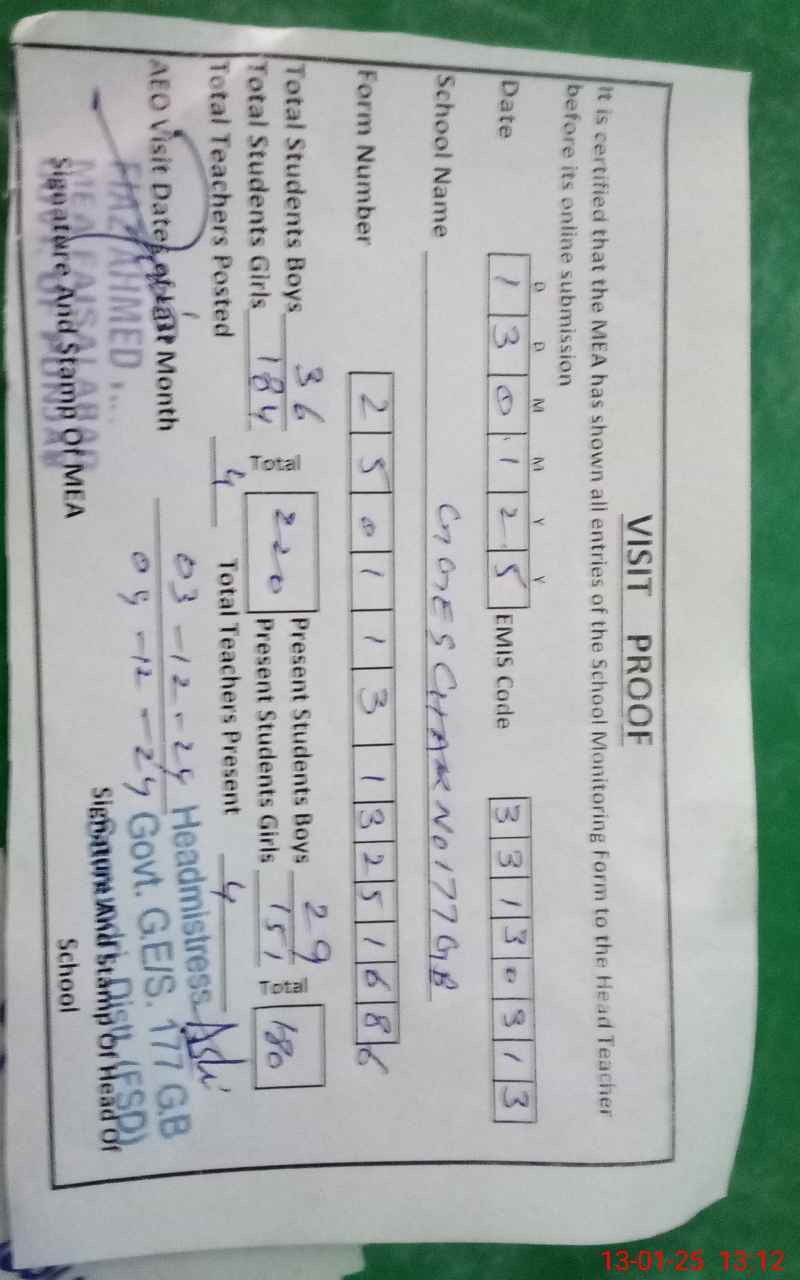 VISIT PROOF
It is certified that the MEA has shown all entries of the School Monitoring Form to the Head Teacher
before its online submission
D D M M Y Y
Date 1 3 0 1 2 5 EMIS Code 3 3 1 3 0 3 1 3
School Name GGES CHAK No 177 GB
Form Number 2 5 0 1 1 3 1 3 2 5 1 6 8 6
Total Students Boys 36 Total 220 Present Students Boys 29 Total 180
Total Students Girls 184 Present Students Girls 151
Total Teachers Posted 4 Total Teachers Present 4
AEO Visit Dates of Last Month 03-12-24
04-12-24
AHMED
MEA FAISALABAD
Signature And Stamp Of MEA
Headmistress
Govt. G.E/S. 177 G.B
Distt. (FSD)
Signature And Stamp Of Head Of
School
13-01-25 13:12